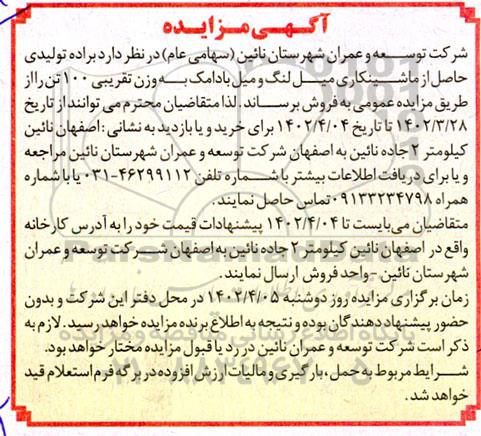 آگهی مزایده
شرکت توسعه و عمران شهرستان نائین (سهامی عام) در نظر دارد براده تولیدی
حاصل از ماشینکاری میل لنگ و میل بادامک به وزن تقریبی ۱۰۰ تن را از
طریق مزایده عمومی به فروش برساند. لذا متقاضیان محترم می توانند از تاریخ
۱۴۰۲/۳/۲۸ تا تاریخ ۱۴۰۲/۴/۰۴ برای خرید و یا بازدید به نشانی: اصفهان نائین
کیلومتر ۲ جاده نائین به اصفهان شرکت توسعه و عمران شهرستان نائین مراجعه
و یا برای دریافت اطلاعات بیشتر با شماره تلفن ۴۶۲۹۹۱۱۲-۰۳۱ یا با شماره
همراه ۰۹۱۳۳۲۳۴۷۹۸ تماس حاصل نمایند.
متقاضیان می بایست تا ۱۴۰۲/۴/۰۴ پیشنهادات قیمت خود را به آدرس کارخانه
واقع در اصفهان نائین کیلومتر ۲ جاده نائین به اصفهان شرکت توسعه و عمران
شهرستان نائین - واحد فروش ارسال نمایند.
زمان برگزاری مزایده روز دوشنبه ۱۴۰۲/۴/۰۵ در محل دفتر این شرکت و بدون
حضور پیشنهاد دهندگان بوده و نتیجه به اطلاع برنده مزایده خواهد رسید. لازم به
ذکر است شرکت توسعه و عمران نائین در رد یا قبول مزایده مختار خواهد بود.
شرایط مربوط به حمل، بارگیری و مالیات ارزش افزوده در برگه فرم استعلام قید
خواهد شد.